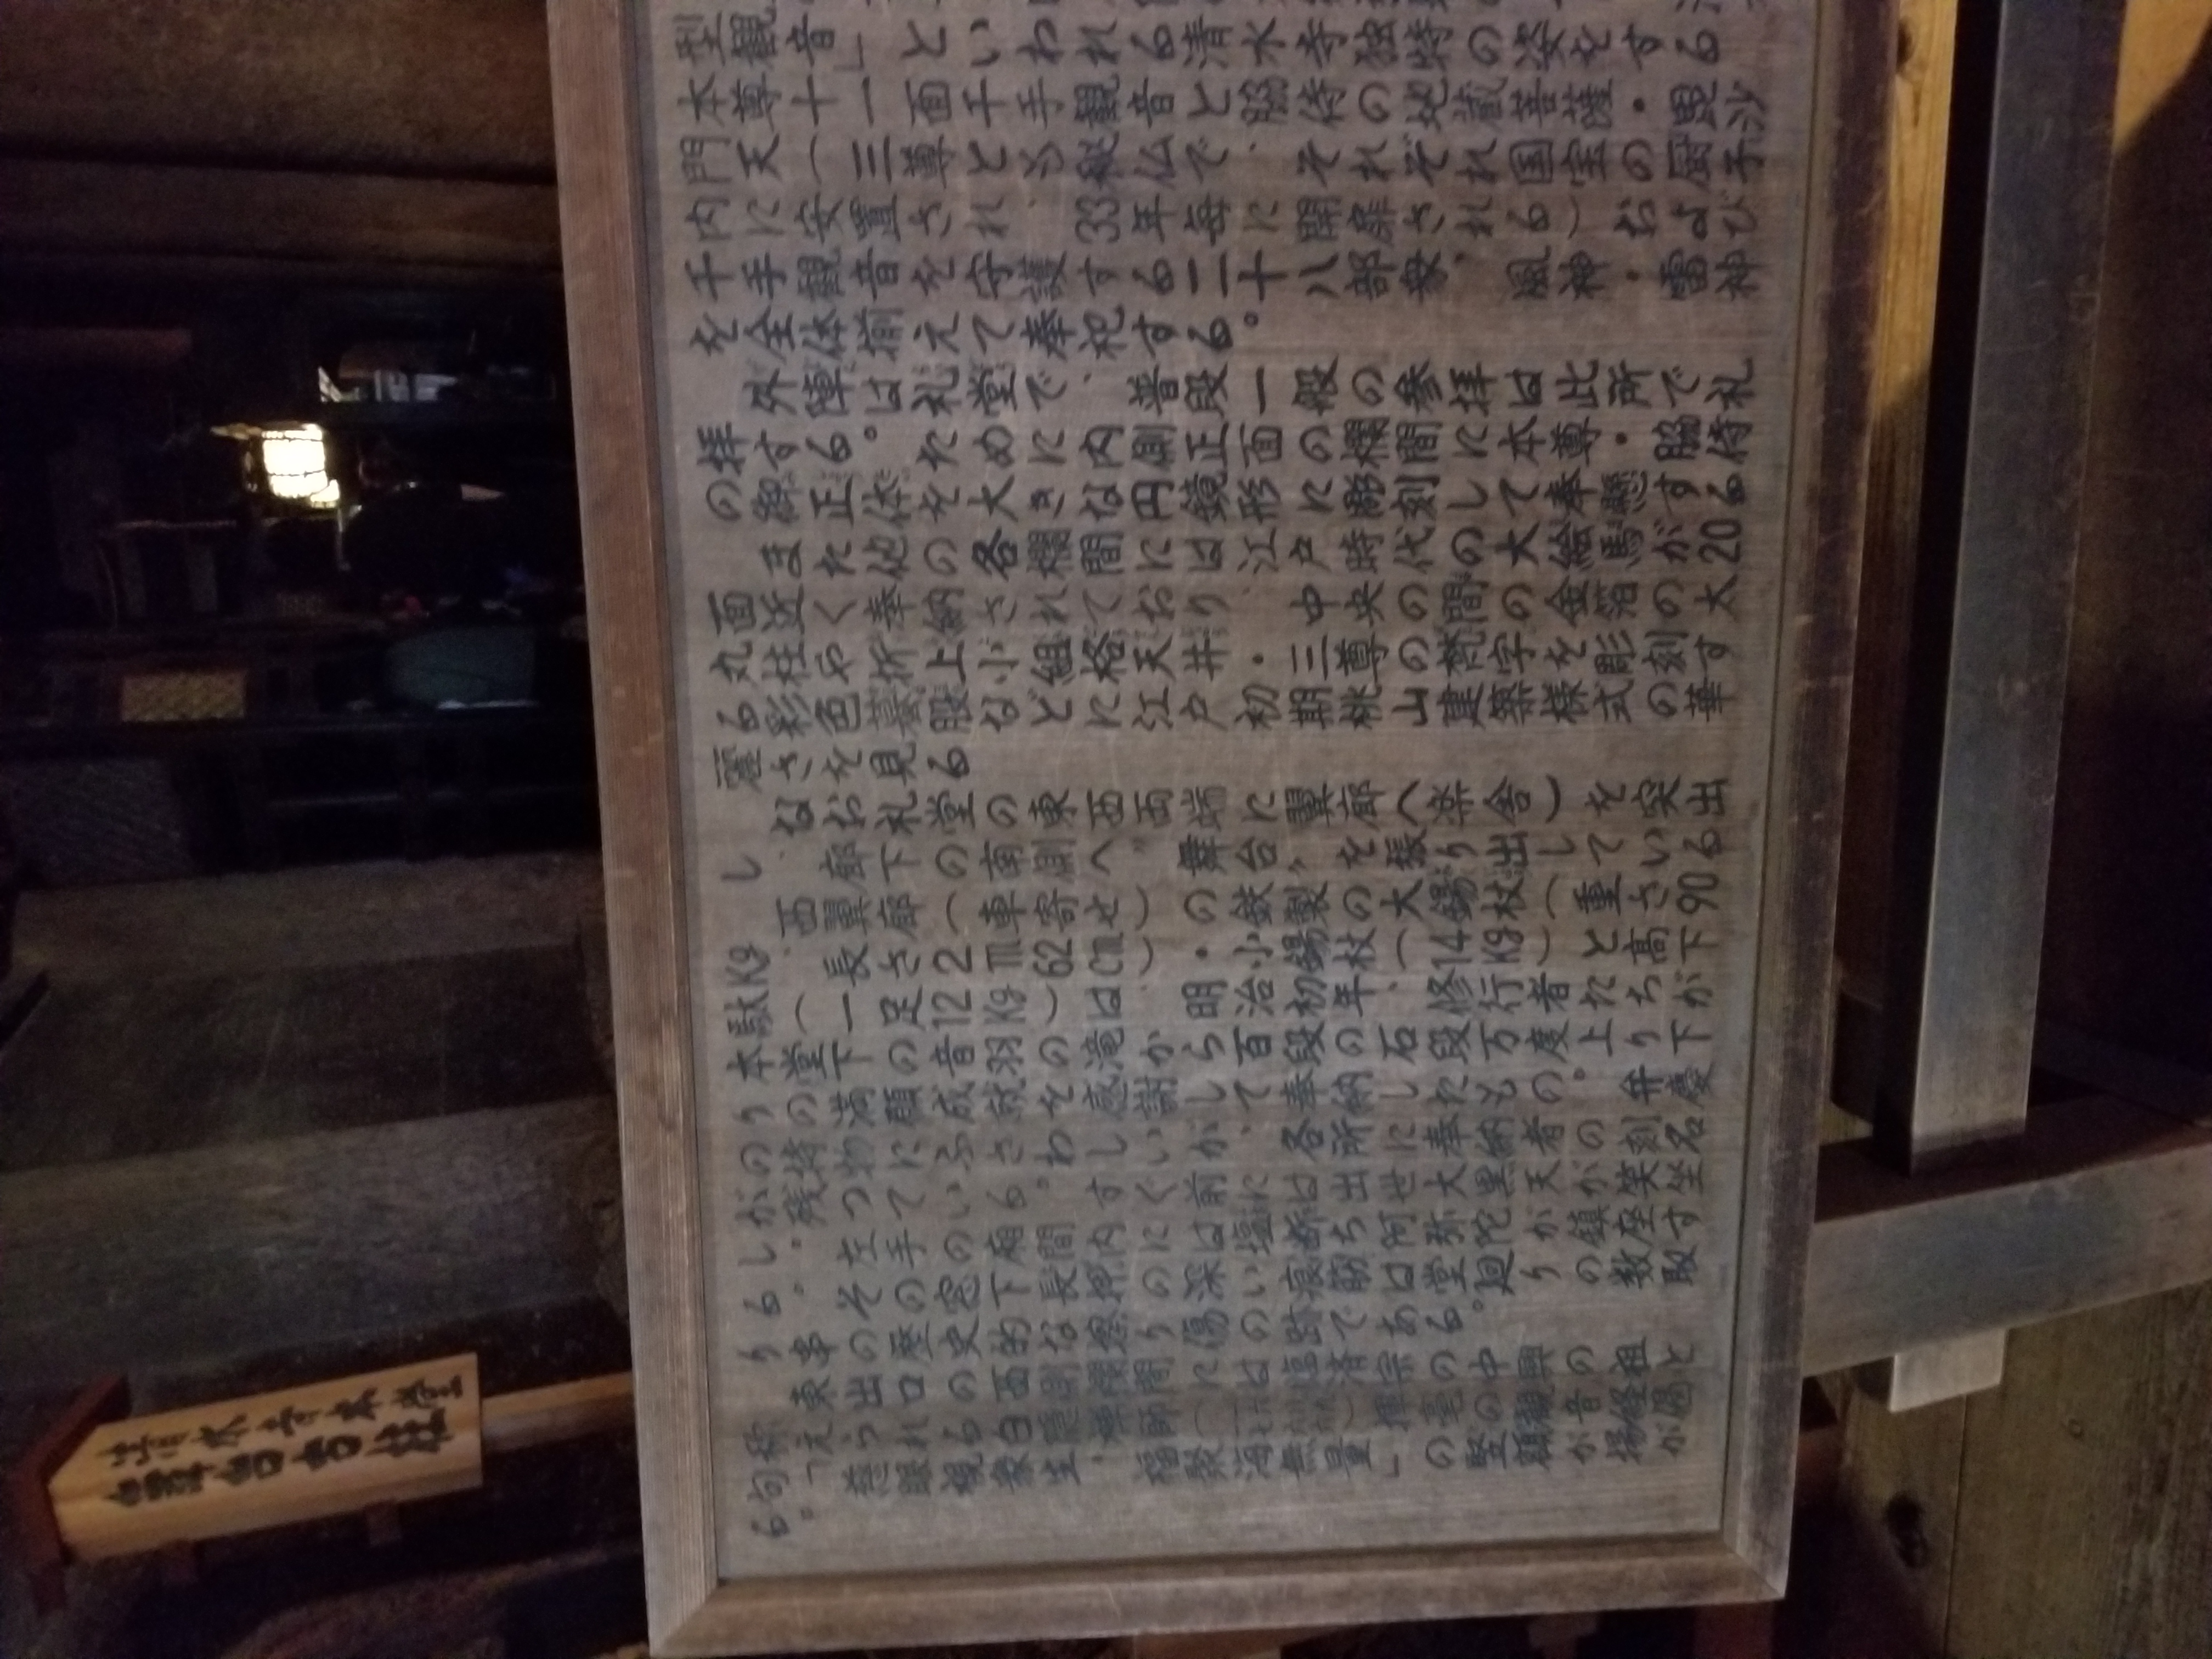 清水寺本堂
舞台古柱
型観音」といわれる清水寺独特の姿をする
本尊十一面千手観音と脇侍の地蔵菩薩・毘沙
門天(三尊とも秘仏で、それぞれ国宝の厨子
内に安置され、33年毎に開扉される)および
千手観音を守護する二十八部衆、風神・雷神
を全体揃えて奉祀する。
外陣は礼堂で、普段一般の参拝は此所で礼
拝する。ために内側正面の欄間に本尊・脇侍
の御正体を大きな円鏡形に彫刻して奉懸する
また他の各欄間には江戸時代の大絵馬が20
面近く奉納されており、中央の間の金箔の太
丸柱や折上小組格天井・三尊の梵字を彫刻す
る彩色蟇股などに江戸初期桃山建築様式の華
麗さを見る
なお礼堂の東西両端に翼廊(楽舎)を突出
し、廊下の南側へ〝舞台〟を張り出している
西翼廊(車寄せ)の鉄製の大錫杖(重さ90
Kg、長さ2m62cm)・小錫杖(14Kg)と高下
駄(一足12Kg)は、明治初年、修行者たちが
本堂下の音羽の滝から百段の石段万度上り下
りの満願成就を感謝して奉納したもの。弁慶
の持物にふさわしいが、各所に奉納者の刻名
が残っている。すぐ前には出世大黒天が笑坐
し、左手の廂間内には塩断ち阿弥陀が鎮座す
る。その窓下長押の深い痕筋は堂廻りの数取
り串の歴史的な擦り傷の跡である。
東出口の西側欄間には臨済宗の中興の祖と
称えられる白隠禅師
揮毫の観音経偈
句「慈眼視衆生、福聚海無量」の竪額が揚が
る。